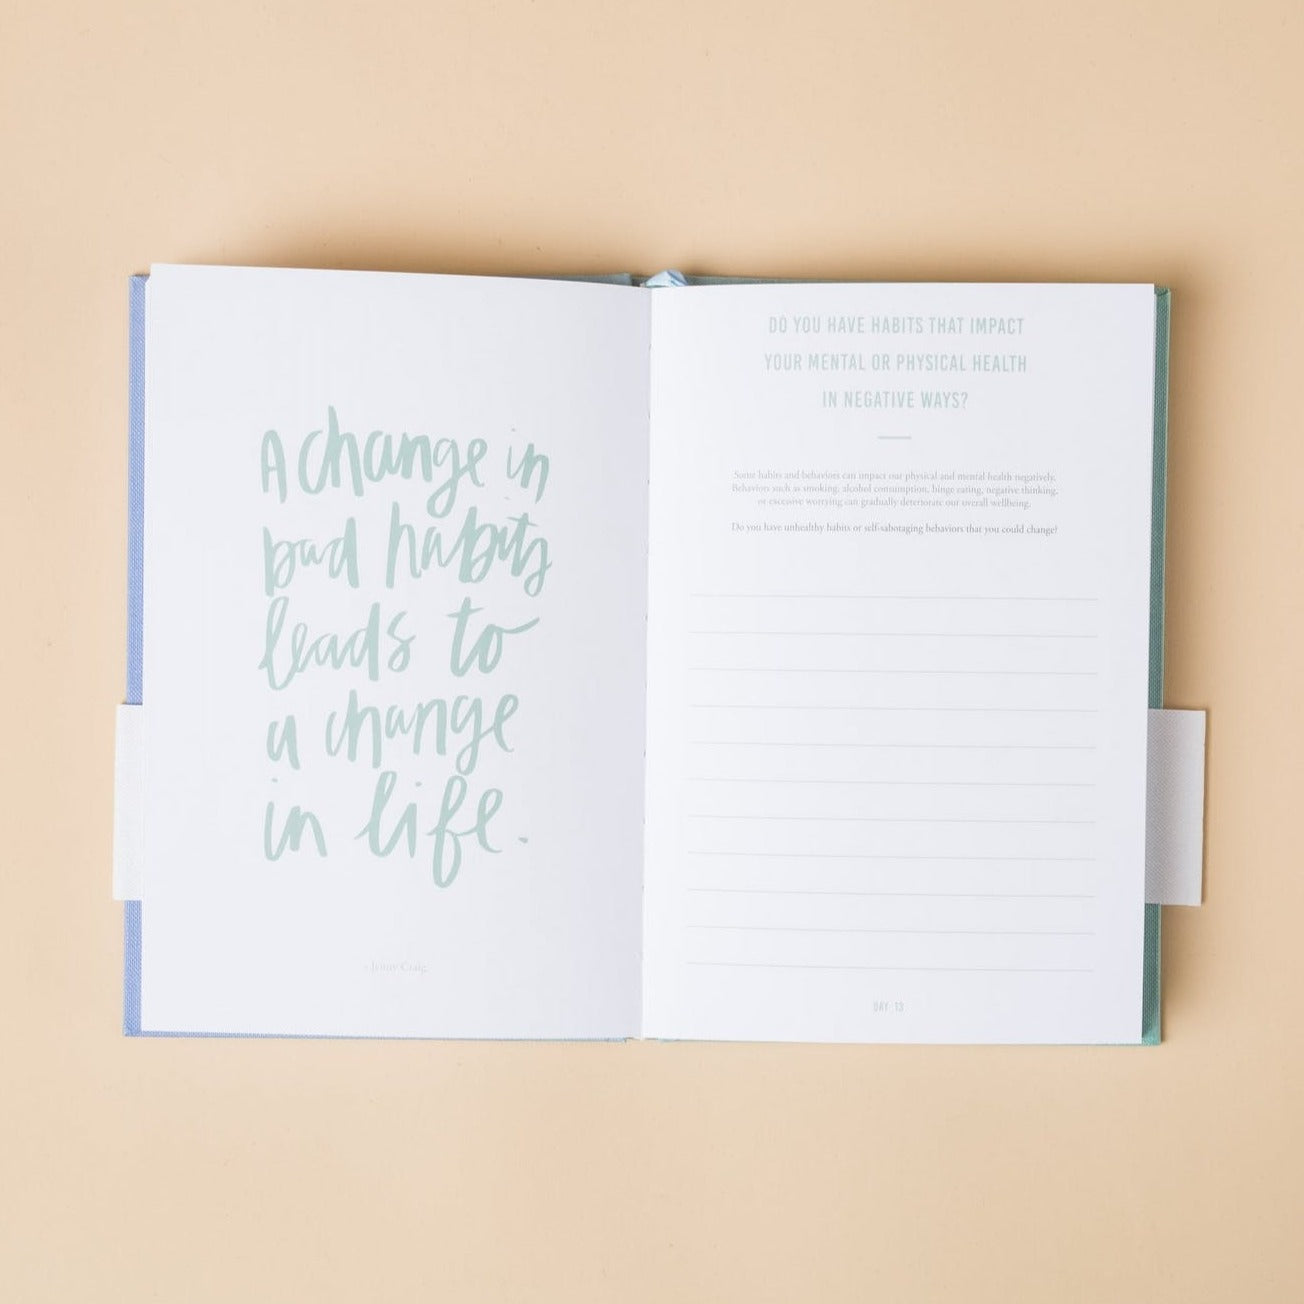 A change in
bad habits
leads to
a change
in life.
- Jenny Craig
DO YOU HAVE HABITS THAT IMPACT
YOUR MENTAL OR PHYSICAL HEALTH
IN NEGATIVE WAYS?
Some habits and behaviors can impact our physical and mental health negatively.
Behaviors such as smoking, alcohol consumption, binge eating, negative thinking,
or excessive worrying can gradually deteriorate our overall wellbeing.
Do you have unhealthy habits or self-sabotaging behaviors that you could change?
DAY 13